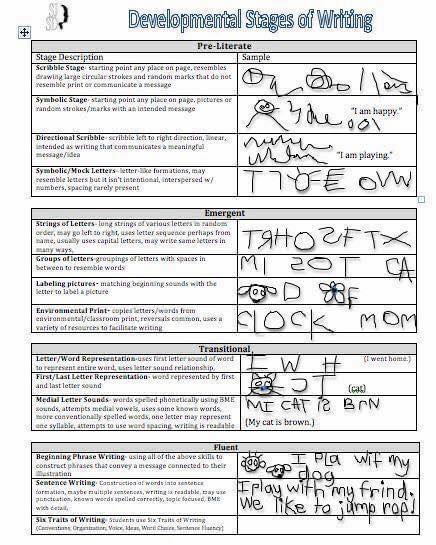 Developmental Stages of Writing
Pre-Literate
Stage Description Sample
Scribble Stage- starting point any place on page, resembles
drawing large circular strokes and random marks that do not
resemble print or communicate a message
Symbolic Stage- starting point any place on page, pictures or
random strokes/marks with an intended message
"I am happy."
Directional Scribble- scribble left to right direction, linear,
intended as writing that communicates a meaningful
message/idea
"I am playing."
Symbolic/Mock Letters- letter-like formations, may
resemble letters but it isn't intentional, interspersed w/
numbers, spacing rarely present
Emergent
Strings of Letters- long strings of various letters in random
order, may go left to right, uses letter sequence perhaps from
name, usually uses capital letters, may write same letters in
many ways,
Groups of letters-groupings of letters with spaces in
between to resemble words
MI SOT CA
Labeling pictures- matching beginning sounds with the
letter to label a picture
D F
Environmental Print- copies letters/words from
environmental/classroom print, reversals common, uses a
variety of resources to facilitate writing
CLOCK MOM
Transitional
Letter/Word Representation-uses first letter sound of word
to represent entire word, uses letter sound relationship,
I W H (I went home.)
First/Last Letter Representation- word represented by first
and last letter sound
CT (cat)
Medial Letter Sounds- words spelled phonetically using BME
sounds, attempts medial vowels, uses some known words,
more conventionally spelled words, one letter may represent
one syllable, attempts to use word spacing, writing is readable
MI CAT is BRN
(My cat is brown.)
Fluent
Beginning Phrase Writing- using all of the above skills to
construct phrases that convey a message connected to their
illustration
I Pla wif my
dog
Sentence Writing- Construction of words into sentence
formation, maybe multiple sentences, writing is readable, may use
punctuation, known words spelled correctly, topic focused, BME
with detail
I play with my frind.
We like to jump rop!
Six Traits of Writing- Students use Six Traits of Writing
(Conventions, Organization, Voice, Ideas, Word Choice, Sentence Fluency)